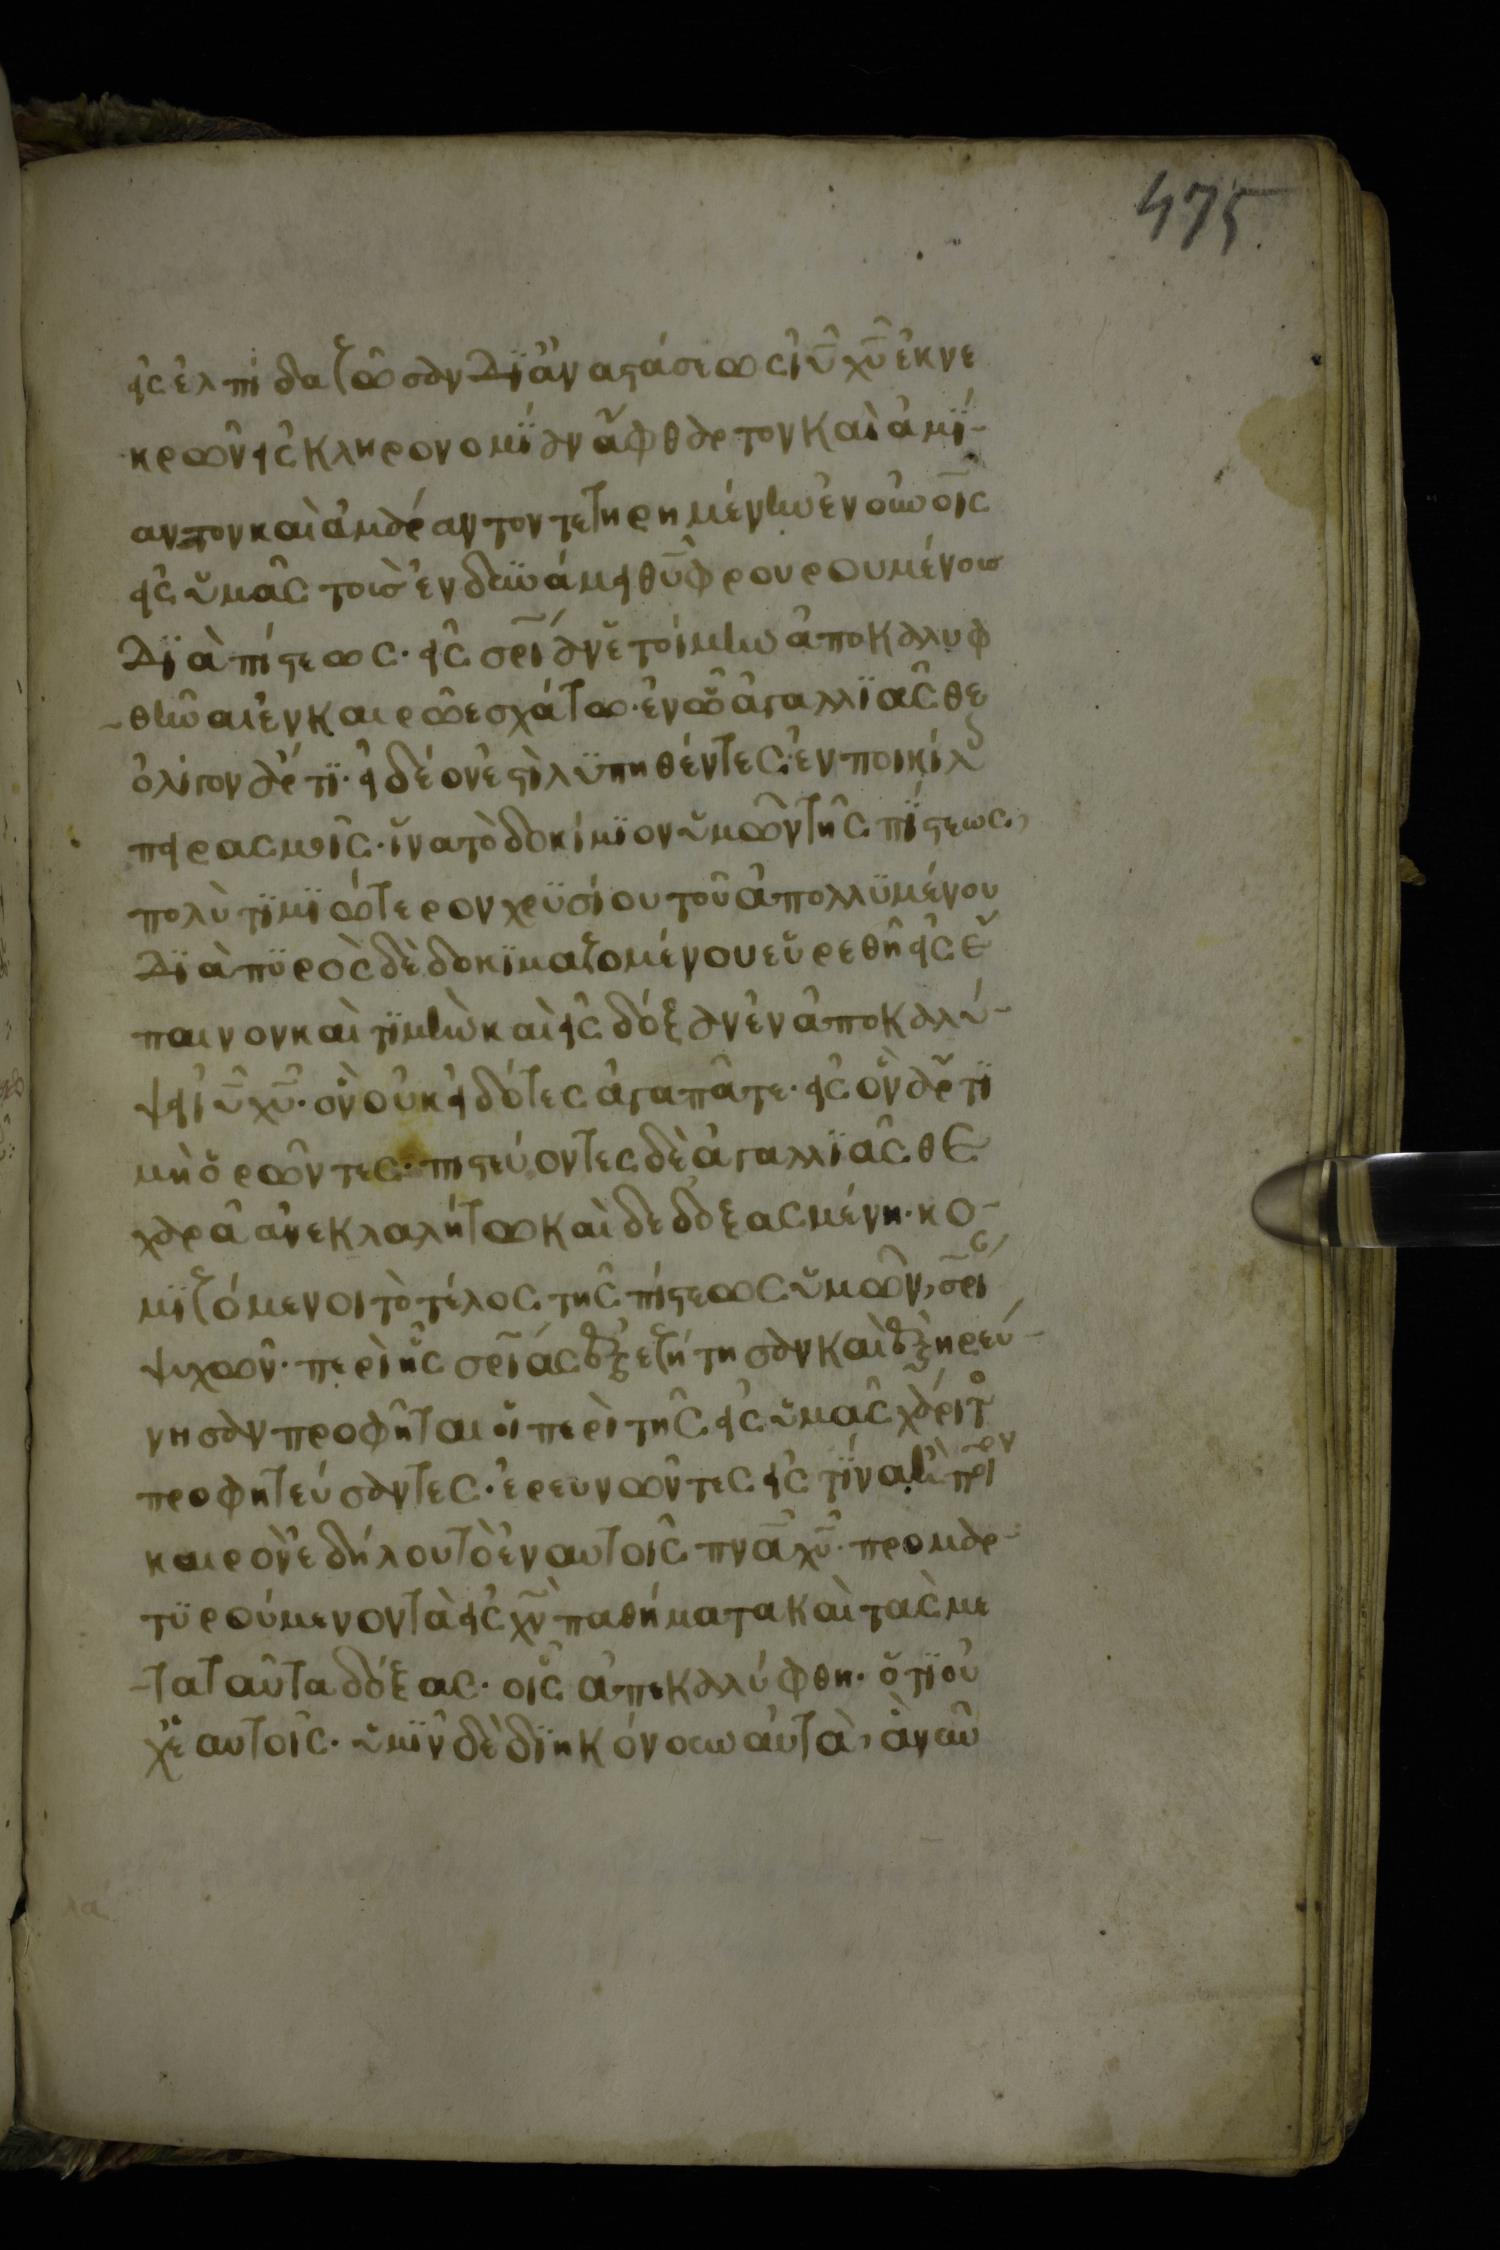 475
εἰς ἐλπίδα ζῶσαν δϊ ἀναστάσεως ἰῦ χῦ ἐκ νε
κρῶν εἰς κληρονομΐαν ἄφθαρτον καὶ ἀμΐ
αντον καὶ ἀμάραντον τετηρημένην ἐν οὐνοῖς
εἰς ὑμᾶς τοὺσ ἐν δυνάμει θῦ φρουρουμένουσ
δϊὰ πίστεως· εἰς σρίαν ἑτοίμην ἀποκαλυφ
θῆναι ἐν καιρῶ ἐσχάτω· ἐν ὧ ἀγαλλϊᾶσθε
ὀλίγον ἄρτϊ· εἰ δέον ἐστὶ λϋπηθέντες· ἐν ποικίλ
πειρασμοῖς· ἵνα τὸ δοκίμϊον ὑμῶν τῆς πΐστεως,
πολὺ τϊμϊώτερον χρϋσίου τοῦ ἀπολλϋμένου
δϊὰ πϋρὸς δὲ δοκϊμαζομένου εὑρεθῆ εἰς ἔ
παινον καὶ τϊμὴν καὶ εἰς δόξαν ἐν ἀποκαλύ
ψει ἰῦ χῦ· ὃν οὐκ εἰδότες ἀγαπᾶτε· εἰς ὃν ἄρτϊ
μὴ ὁρῶντες· πιστεύοντες δὲ ἀγαλλϊᾶσθε
χαρᾶ ἀνεκλαλήτω καὶ δεδοξασμένη· κο
μϊζόμενοι τὸ τέλος τῆς πίστεως ὑμῶν, σρί
ψυχῶν· περὶ ἧς σρίας ἐξεζήτησαν καὶ ἐξηρεύ
νησαν προφῆται οἱ περὶ τῆς εἰς ὑμᾶς χάριτο
προφητεύσαντες· ἐρευνῶντες εἰς τΐνα ἢ
καιρὸν ἐδήλου τὸ ἐν αυτοῖς πνᾶ χῦ· προμαρ
τϋρούμενον τὰ εἰς χν παθήματα καὶ τὰς με
τα ταῦτα δόξας· οἷς ἀπεκαλύφθη· ὅτϊ οὐ
χ ἑαυτοῖς· ὑμῖν δὲ δϊηκόνουν αὐτὰ, ἃ νῦν